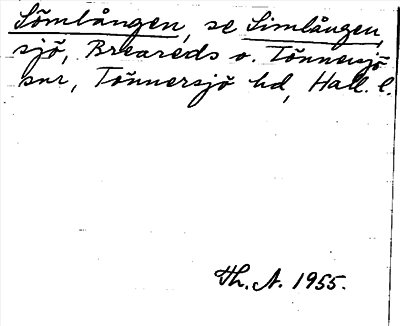 Sömlången, se Simlången,
sjö, Breareds o. Tönnersjö
snr, Tönnersjö hd, Hall. l.
Th. A. 1955.